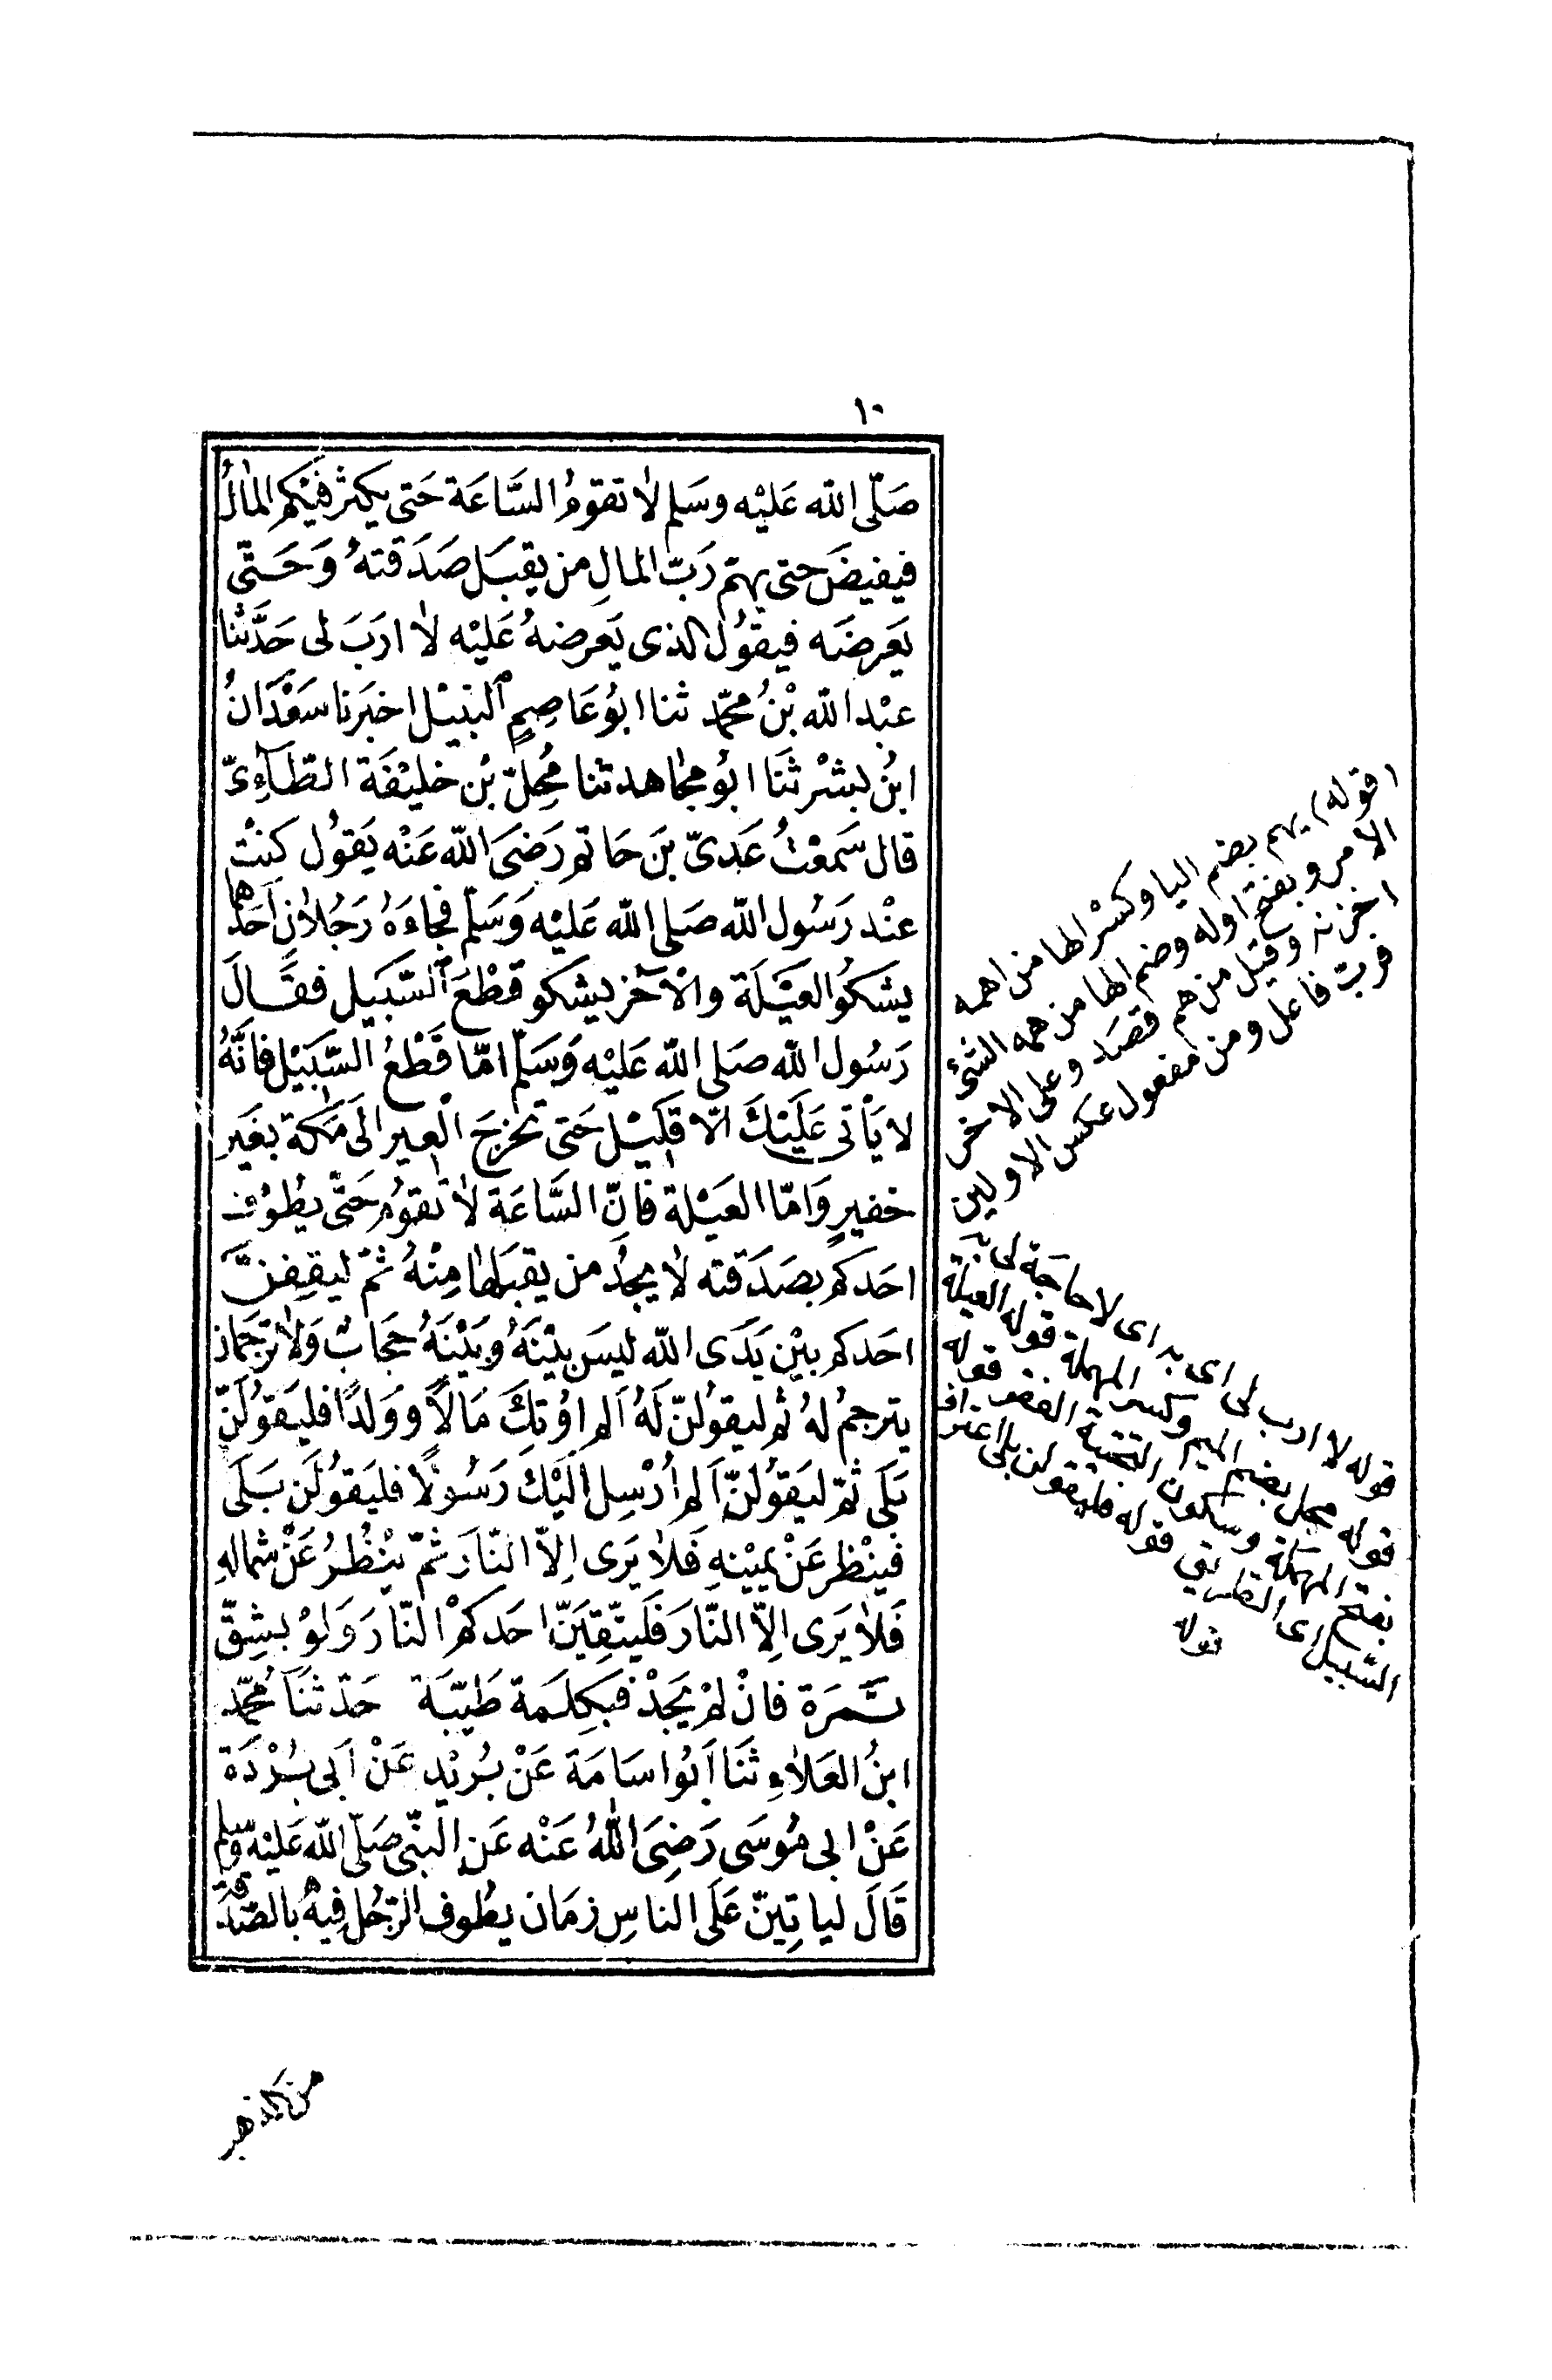 ١٠
صَلّى الله عَليْه وسَلم لا تقومُ السَّاعَة حَتى يكثر فيْكم المالُ
فيفيضَ حتى يهمّ رَبّ المالِ من يقبَل صَدَقتهُ وَحَتّى
يَعرضَه فيقوُل الذى يَعرضهُ عَليْه لا ارَبَ لى حَدَّثنا
عبْد الله بْنُ محمّد ثنا ابوُ عَاصِمٍ النبيْل اخبَرنا سَعْدَانُ
ابنُ بشْر ثَنَا ابُو مجاهد ثنا مُحِلّ بْن خليْفَة الطّآءِىّ
قال سَمعْتُ عَدِىّ بَن حَاتم رَضىَ الله عَنْه يَقوُل كنْت
عنْد رَسُول الله صَلى الله عَليْه وَسَلّم فجاءَهُ رَجُلانِ اَحَدُهما
يشكوُ العَيْلَة والاَخر يشكو قطْعَ السَّبيَل فقَالَ
رَسُول الله صَلى الله عَليْه وَسَلّم امّا قَطْعُ السَّبيْل فانَّهُ
لا يَأتى عَلَيْكَ الا قليْل حَتى تخرجَ الْعير الَى مَكة بغَير
خفيرٍ وَامّا العَيْلة فانّ السَّاعَة لا تقوُم حَتّى يطوُف
احَدكم بصَدَقته لا يجدُ من يقبَلها مِنْهُ ثمّ ليقِفنَّ
احَدكم بيْن يَدَى الله ليسَ بيْنَهُ وَبَيْنَهُ حجَابٌ وَلا ترجَمان
يترجمُ لهُ ثم ليقوُلنّ لَهُ اَلم اوُتكَ مَالاً وولَدًا فليَقوُلَنّ
بَلَى ثمّ ليَقوُلنّ اَلم اُرْسِل اليْكَ رَسُولًا فليَقوُلَن بَلَى
فينْظر عَنْ يميْنهِ فَلا يَرى اِلاّ النّارَ ثمّ ينْظُرُ عَنْ شمالهِ
فَلا يَرى اِلاّ النّارَ فَليتّقِيَنّ احَدكمْ النّارَ وَلوْ بشِقّ
تَمرَة فانْ لمْ يَجدْ فبَكِلمَة طَيّبَة حَدّثنَا محمّد
ابنُ العَلاءِ ثَنَا اَبُو اسَامَة عَنْ بُريْد عَنْ اَبى بُرْدَة
عَنْ ابى مُوسَى رَضِىَ اللهُ عَنْه عَن النبّى صَلّى الله عَليْه وسلم
قَالَ لياتِيَنّ عَلَى الناسِ زمَان يطُوف الرّجُل فِيهُ بالصّدَقة
(قوله) يهم بضم اليا وكسْر الها من اهمه
الامر وبفتح اوله وضم الها من همه الشئ
احزنه وقيل من هم قصَد وعلى الاخر
فربّ فاعل ومن مفعول عكس الاولين
قوله لا ارب لى اى به اى لا حاجة لى به
قوله محل بضم الميم وكسر المهملة قوله العيلة
بفتح المهملة وسكون التحتية الفقر قوله
السّبيل اى الطريق قوله فليقولن بلى اعتراف
قوله
من يذهب